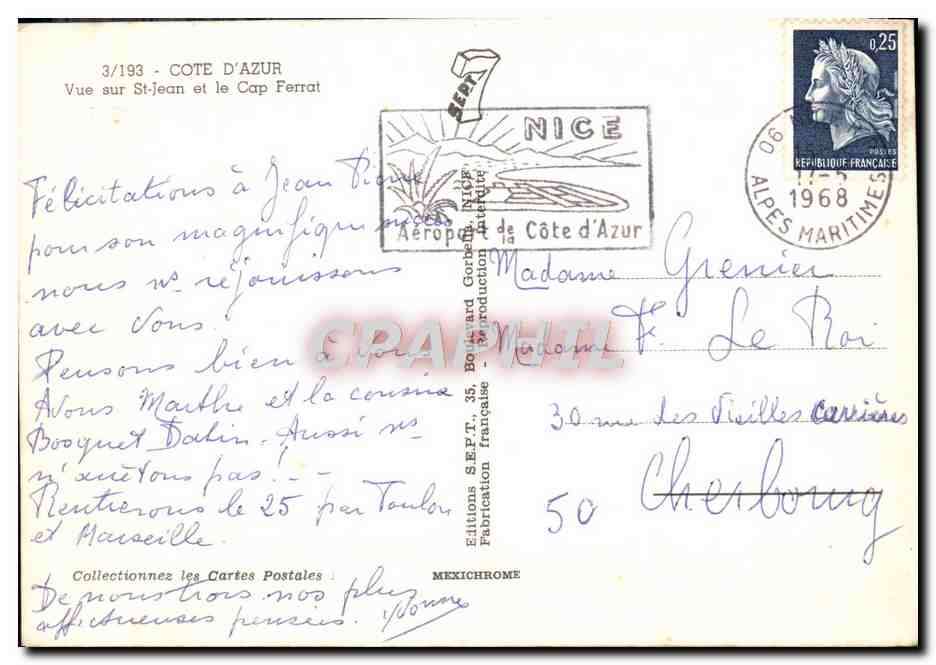 3/193 - COTE D'AZUR
Vue sur St-Jean et le Cap Ferrat
SEPT
7
NICE
Aéroport de la Côte d'Azur
0,25
POSTES
REPUBLIQUE FRANÇAISE
06
1968
ALPES MARITIMES
Félicitations à Jean Pierre
pour son magnifique succès
nous ns réjouissons
avec Vous.
Pensons bien à vous
Avons Marthe et la cousine
Bosquet Datin. Aussi ns
n'arrêtons pas! -
Rentrerons le 25 par Toulon
et Marseille.
De nous trois nos plus
affectueuses pensées. Yvonne
Editions S.E.P.T., 35, Boulevard Gorbella, NICE
Fabrication française - Reproduction interdite
Madame Grenier
Madame F. Le Roi
30 rue des Vieilles carrières
50 Cherbourg
Collectionnez les Cartes Postales :
MEXICHROME
CPAPHIL